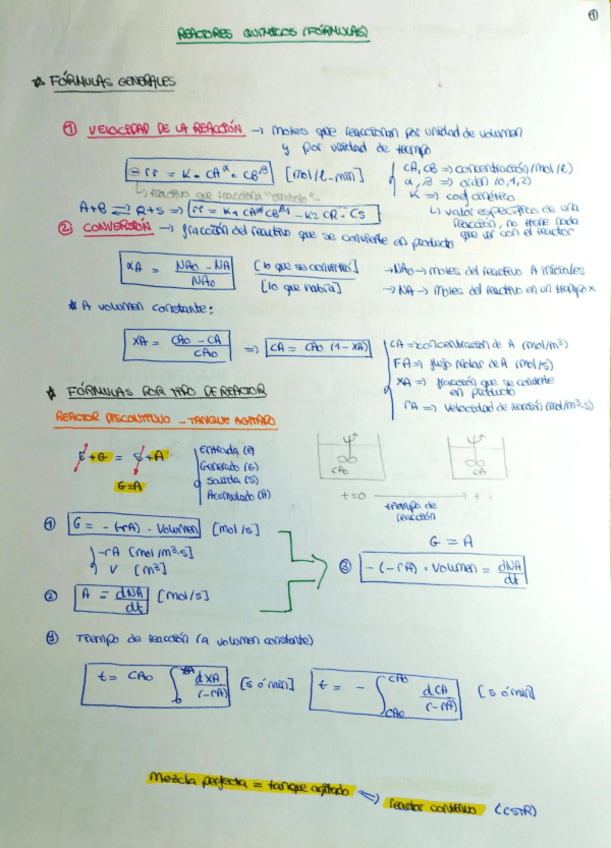 ①
REACTORES QUÍMICOS (FÓRMULAS)
☆ FÓRMULAS GENERALES
① VELOCIDAD DE LA REACCIÓN → moles que reaccionan por unidad de volumen
y por unidad de tiempo
= K · CA^α · CB^β [mol/l-min]
CA, CB ⇒ concentración (mol/l)
α, β ⇒ orden (0,1,2)
K ⇒ coef cinético
↳ valor específico de una
reacción, no tiene nada
que ver con el reactor
↳ reactivo que reacciona
A+B ⇌ R+S ⇒
② CONVERSIÓN → fracción del reactivo que se convierte en producto
XA = NAo - NA / NAo
[lo que se convirtió] / [lo que había]
→ NAo → moles del reactivo A iniciales
→ NA → moles del reactivo en un tiempo x
* A volumen constante:
XA = CAo - CA / CAo ⇒ CA = CAo (1 - XA)
CA ⇒ concentración de A (mol/m³)
FA ⇒ flujo molar de A (mol/s)
XA ⇒ fracción que se convierte
en producto
rA ⇒ velocidad de reacción (mol/m³.s)
☆ FÓRMULAS POR TIPO DE REACTOR
REACTOR DISCONTINUO - TANQUE AGITADO
E + G = S + A
G = A
Entrada (E)
Generado (G)
Salida (S)
Acumulado (A)
CAo
CA
t=0 → t
tiempo de
reacción
① G = - (-rA) · Volumen [mol/s]
-rA [mol/m³.s]
V [m³]
② A = dNA/dt [mol/s]
G = A
③ -(-rA) · Volumen = dNA/dt
Tiempo de reacción (a volumen constante)
t = CAo ∫₀^XA dXA/(-rA) [s ó min]
t = - ∫ dCA/(-rA) [s ó min]
mezcla perfecta = tanque agitado ⇒ reactor continuo (CSTR)